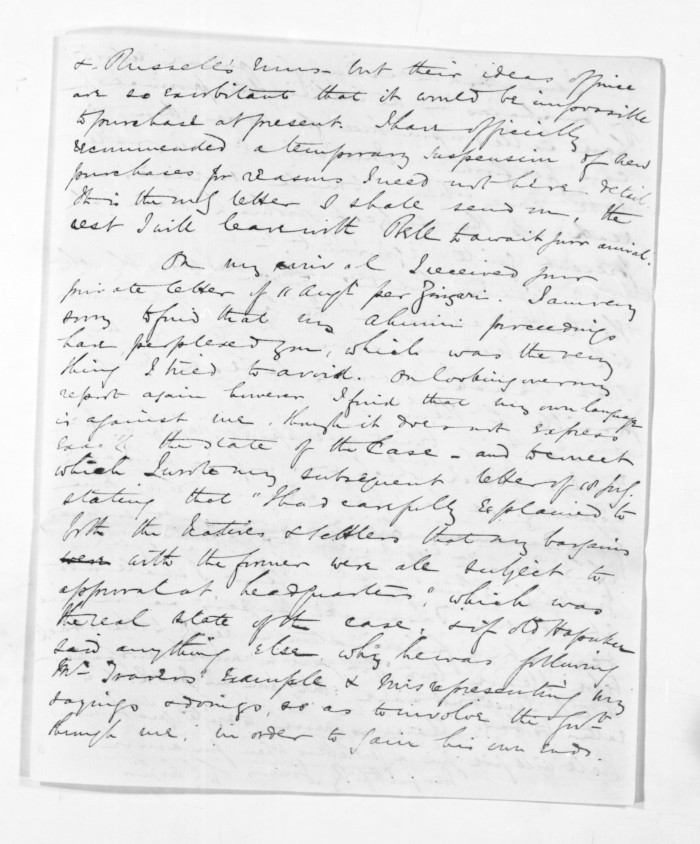 & Russell's runs - but their ideas of price
are so exorbitant that it would be impossible
to purchase at present. I have officially
recommended a temporary suspension of new
purchases for reasons I need not here detail.
It is the only letter I shall send on, the
rest I will leave with Pelk to await your arrival.
On my arrival I received your
private letter of 11 Augt. per Zingari. I am very
sorry to find that my Ahuriri proceedings
have perplexed you, which was the very
thing I tried to avoid. On looking over my
report again however I find that my own language
is against me, though it does not express
exactly the state of the case - and to meet
which I wrote my subsequent letter of 18 July
stating that "I had carefully explained to
both the Natives & settlers that my bargains
were with the former were all subject to
approval at headquarters", which was
the real state of the case, & if old Hapuku
said anything else why, he was following
Mr. Travers' example & misrepresenting my
sayings & doings, so as to involve the Govt.
through me, in order to gain his own ends.